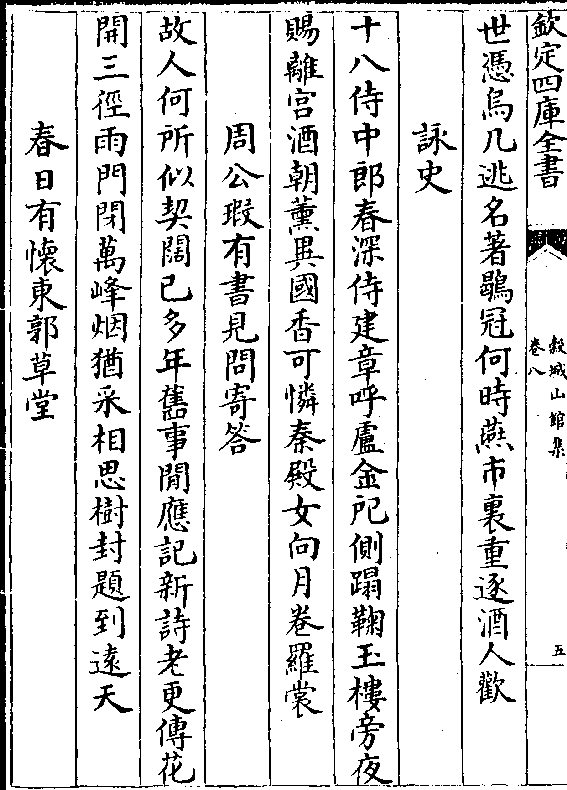 欽定四庫全書
穀城山館集
卷八
五
世憑烏几逃名著鶡冠何時燕市裏重逐酒人歡
詠史
十八侍中郎春深侍建章呼盧金戺側蹋鞠玉樓旁夜
賜離宮酒朝薰異國香可憐秦殿女向月卷羅裳
周公瑕有書見問寄答
故人何所似契闊已多年舊事閒應記新詩老更傳花
開三徑雨門閉萬峰烟猶采相思樹封題到遠天
春日有懷東郭草堂